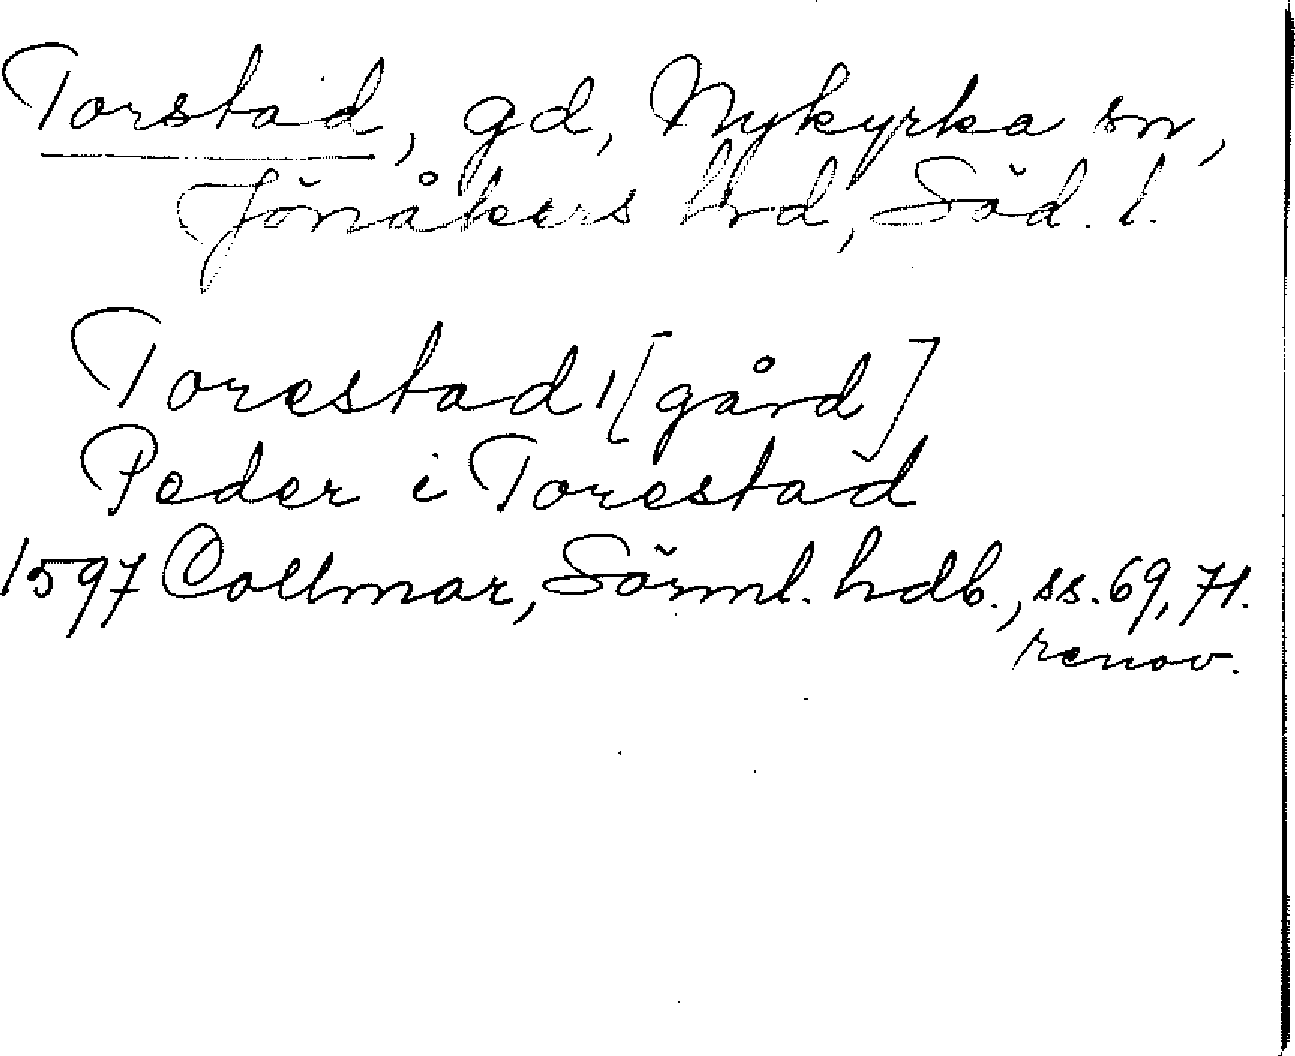 Torstad, gd, Nykyrka sn,
Jönåkers hrd, Söd. l.
Torestad, [gård]
Peder i Torestad
1597 Collmar, Sörml. hdb., ss. 69, 71.
renov.